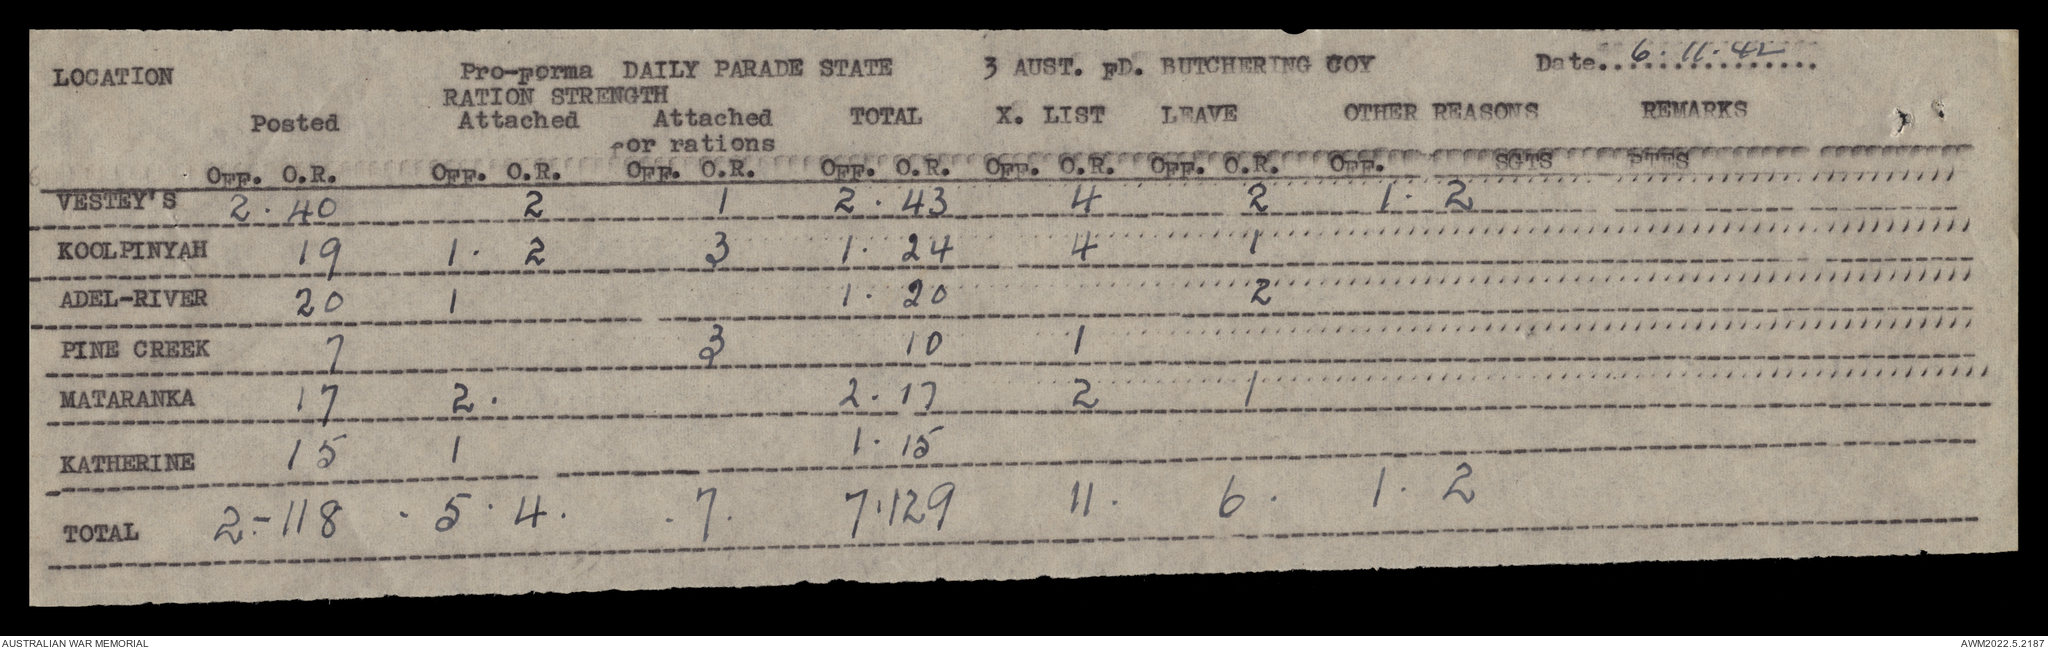 LOCATION Pro-Forma DAILY PARADE STATE 3 AUST. FD. BUTCHERING COY Date 6.11.42
RATION STRENGTH
Posted Attached Attached TOTAL X. LIST LEAVE OTHER REASONS REMARKS
For rations
OFF. O.R. OFF. O.R. OFF. O.R. OFF. O.R. OFF. O.R. OFF. O.R. OFF. SGTS PTES
VESTEY'S 2 . 40 2 1 2 . 43 4 2 1 . 2
KOOLPINYAH 19 1 . 2 3 1 . 24 4 1
ADEL-RIVER 20 1 1 . 20 2
PINE CREEK 7 3 10 1
MATARANKA 17 2 . 2 . 17 2 1
KATHERINE 15 1 1 . 15
TOTAL 2 - 118 . 5 . 4 . . 7 . 7 . 129 11 . 6 . 1 . 2
AUSTRALIAN WAR MEMORIAL AWM2022.5.2187